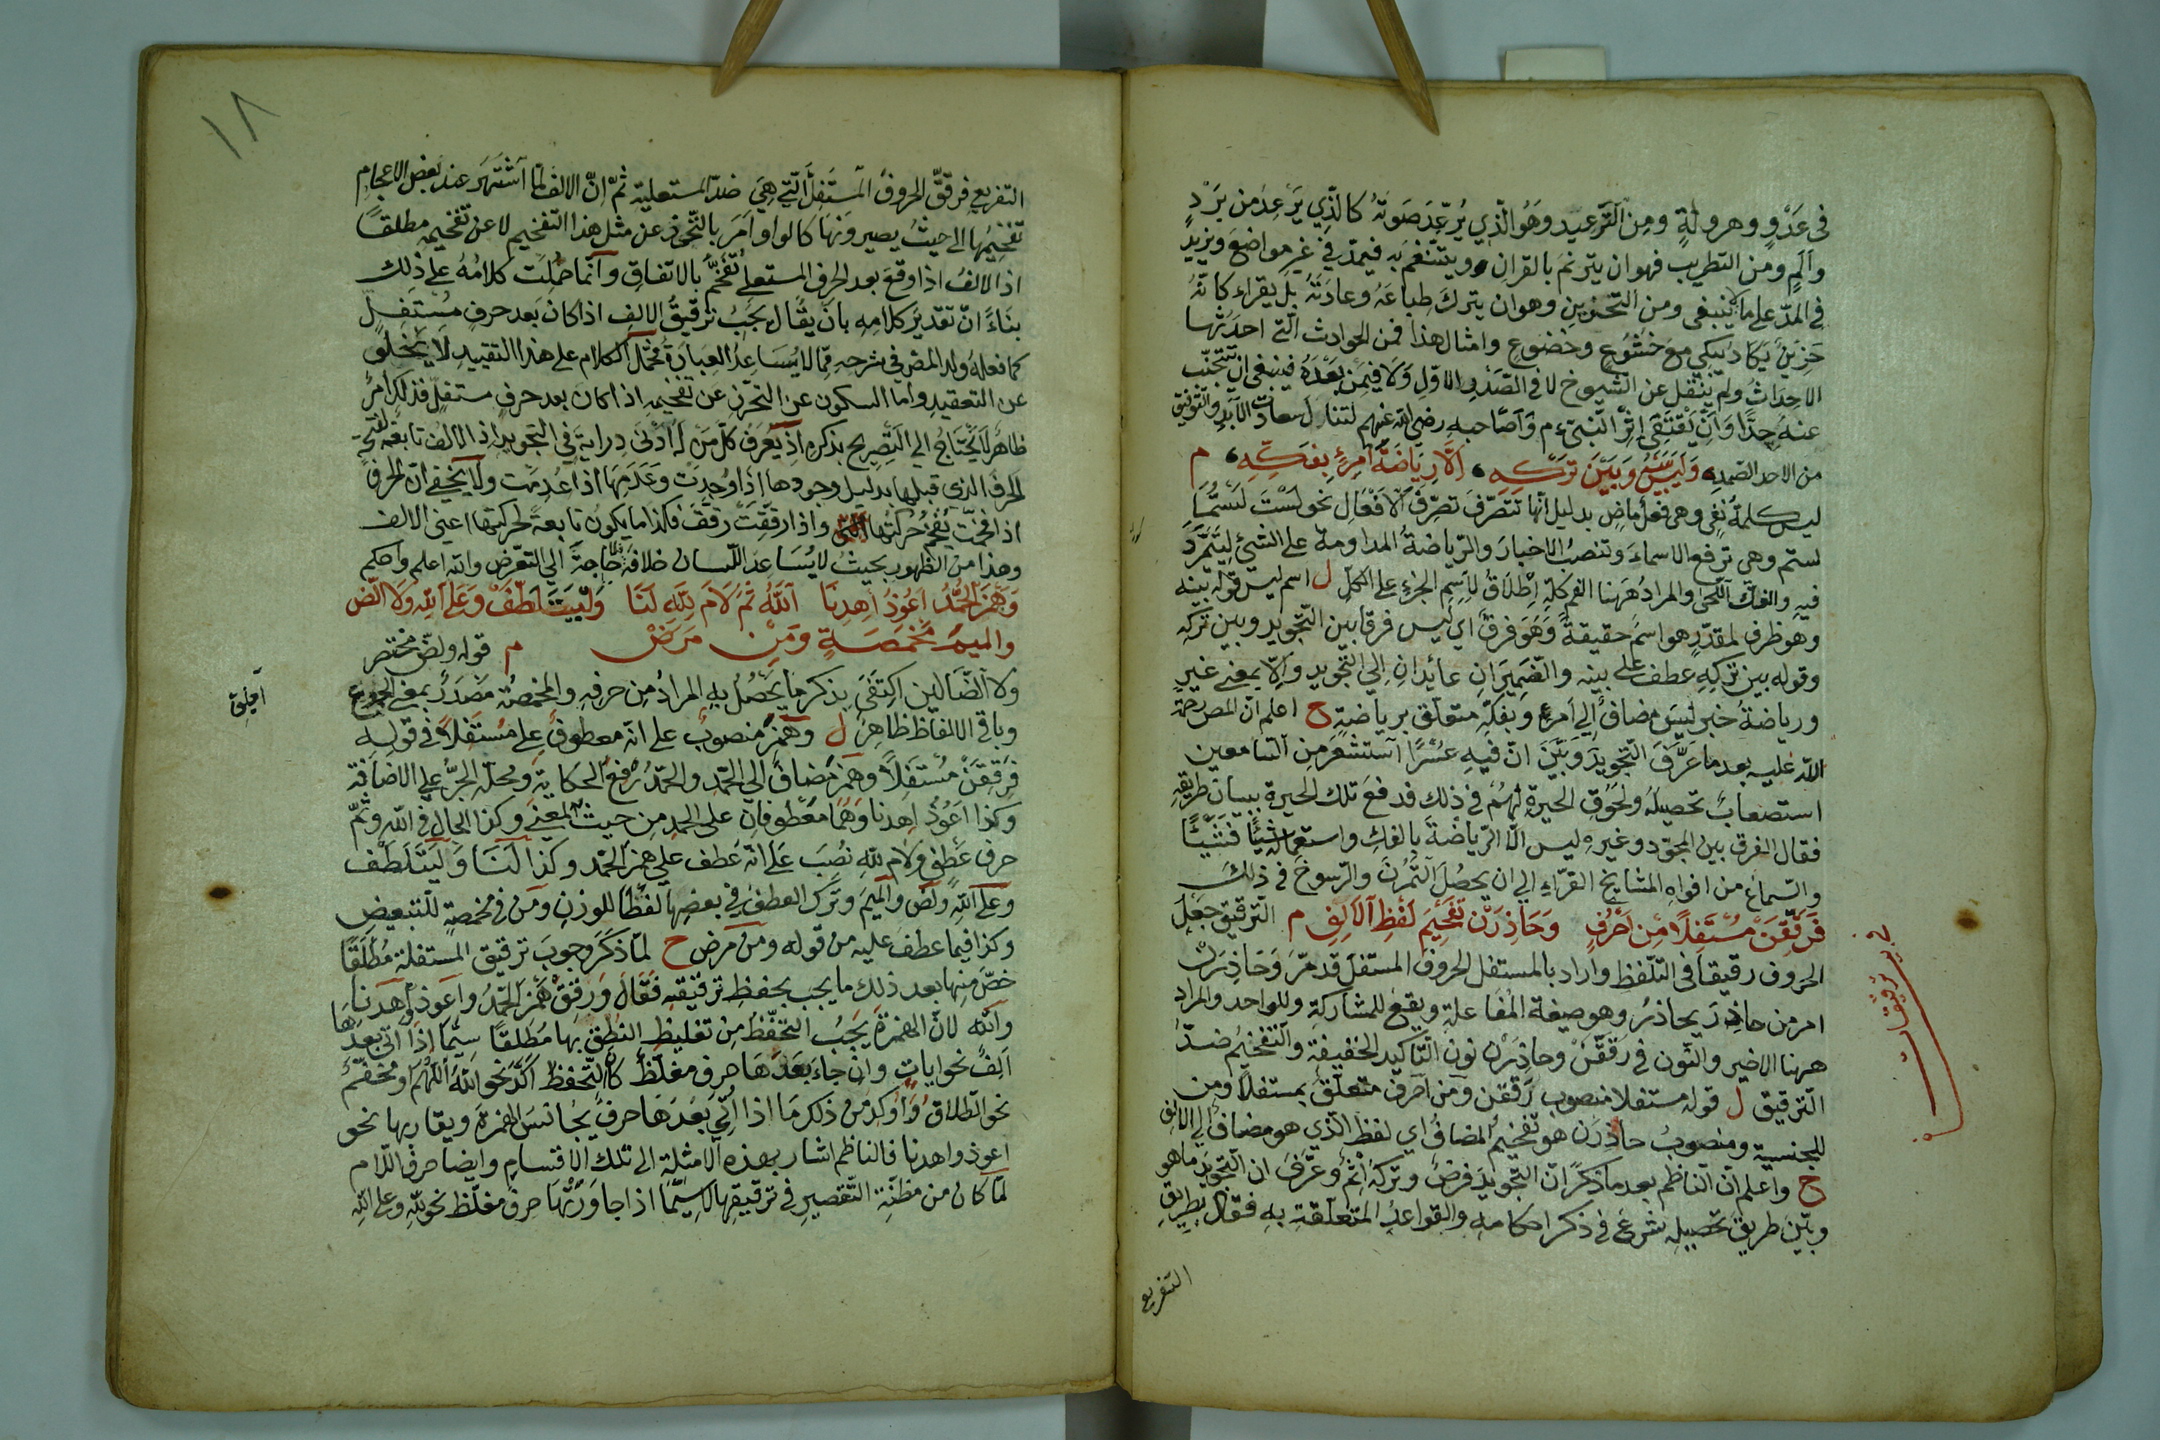 في عَدْوٍ وهرولةٍ ومِن التَّرعيد وهُو الّذي يُرعِّدَ صَوتَهُ كالّذِي يَرْعِدُ من بَرْدٍ
وألمٍ ومن التطريب فهو ان يترنمَ بالقرانِ ويتنغم به فيمدّ في غير مواضعَ ويزيدُ
في المدّ على ما لا ينبغي ومن التّحزين وهو ان يتركَ طِباعَهُ وعادَتَهُ بل يقراء كانّهُ
حَزينٌ يكادُ يبكي معَ خشُوعٍ وخضُوعٍ وامثال هذا فمن الحوادث الّتي احدَثها
الاحداثُ ولم ينقل عن الشيوخ لا في الصّدر الاوّل وَلا فيمَن بَعْدَهُ فينبغي ان تجتنّب
عنهُ جدًّا وَانْ يقتفى اِثْرُ النّبيّ م وَاصحابه رضي الله عنهم لتنال سعادت الآبد والتوفيق
من الاحد الصّمد وَلَيسَ بَيْنَهُ وَبَيْنَ تَركِهِ اِلّا رِيَاضَةُ امرِئٍ بِفَكِّهِ م
ليس كلمةُ نفي وهي فعلُ ماضٍ بدليل انّها تتصرّف تصرّف الافعال نحو لسْتَ لستُما
لستم وهي ترفع الاسماءَ وتنصبُ الاخبارَ والرّياضةُ المداومة على الشيئ ليَتَمَرَّدَ
فيهِ والفكّ اللّحى والمراد هَهنا الفم كله اِطلاقُ لاِسمِ الجزءِ على الكلّ ل اسم ليس قوله بينه
وهو ظرف لمقدّر هو اسمُ حقيقةً وهَوَ فرقٌ اي ليس فرقا بين التّجويد وبين تركه
وقوله بين تركِهِ عطف على بينه والضّميرَانِ عائدانِ اِلي التّجويد واِلّا بمعنى غير
ورياضةُ خبر ليسَ مضافٌ اِلي امرئٍ وبفكّه متعلق برياضةٍ ح اعلم انّ المص رحمة
اللّٰه عليه بعدما عَرَّفَ التّجويدَ وبيَّنَ انّ فيهِ عُسْرًا استشعرَ مِن السّامعين
استصعابَ تحصيلهُ ولحوق الحيرة لهم في ذٰلك فدفعَ تلك الحيرة ببيان طريقه
فقال الفرق بين المجوّد وغيره ليس الّا الرّياضةَ بالفك واستعماله شيئًا فشيئًا
والسّماعَ من افواهِ المشايخ القرّاء الي ان يحصُلَ التّمرُنَ والرّسوخَ في ذلك
فَرَقِّقَنْ مُسْتَفِلًا مِنْ اَحْرُفٍ وَحَاذِرَنْ تَفْخِيمَ لَفْظِ الاَلِفِ م التّرقيق جَعْلَ
الحروف رقيقًا في التّلفّظ واراد بالمستفل الحروف المستفل قد مرّ وَحَاذِرَنْ
امر من حاذَرَ يحاذرُ وهو صيغة المفاعلةِ ويقع للمشاركةِ وللواحد والمراد
ههنا الاخير والنّون في رَقِّقَنْ وحاذِرَنْ نون التّأكيد الخفيفة والتّفخيمُ ضدّ
التّرقيق ل قوله مستفلا منصوب رَقِّقَن ومن احرف متعلّقٌ بمستفلًا ومن
للجنسية ومنصوبُ حاذِرَن هو تفخيمُ المضافُ اي لفظ الّذي هو مضاف الي الالف
ح واعلم انّ النّاظم بعد ما ذكرَ انّ التّجويدَ فرضٌ وتركهُ اثمٌ وعرّفَ ان التّجويدَ ما هو
وبيّن طريق تحصيله شرع في ذكر احكامه والقواعدِ المتعلّقة به فقال بطريق
التفريع
في ترقيقات
١٨
التفريع فرققّ الحروفُ المستفلُ الّتي هيَ ضدّ المستعلية ثمّ اِنّ الالف لمّا اشتهَرَ عند بعض الاعجام
تفخيمُها الي حيثُ يصيرونها كالواو اَمَرَ بالتّحرّز عن مثل هذا التفخيم لا عن تفخيمه مطلقًا
اذ الالفُ اذا وقعَ بعد الحرف المستعلى تفخَّمُ بالاتفاق وانّما حُمِلَت كلامُهُ على ذٰلك
بناءً انّ تقديرَ كلامِهِ بانْ يقُال يجبُ ترقيقُ الالف اذا كانَ بعد حرفٍ مُستفلٍ
كما فعلهُ ولد المص في شرحِهِ ممّا لا يُسَاعِدُ العِبارَةُ مُحمّل الكلام على هذا التقييدِ لا يَخلُو
عن التعقيدِ وامّا السكون عن التحرّزِ عن تفخيمِهِ اذا كان بعد حرفٍ مستفلٍ فذلك أمرٌ
ظاهرٌ لا يحتاجُ الي التّصريح بذكره اذ يعرفُ كلّ مَن لَهُ ادْنى دِرايةٍ في التجويد اذ الالفُ تابعٌ لفتح
الحرف الذي قبلها بدليل وجودها اِذا وُجِدت وَعدَمِها اذا عُدِمَت ولا يخفى انّ الحرف
اذا فخّمت تفخّم حركتُها وإذا رقّقتَ رقّقت فكذا ما يكونُ تابعةً لحركتها اعني الالف
وهذا من الظّهور بحيثُ لا يُسَاعد اللّسان خلافَهُ فلا حَاجةَ الي التعّرض والله اعلم واحكم
وَهَمْزَ اَلحَمْدُ اَعُوذُ اِهدِنَا اَللّٰهُ ثُمَّ لَامَ لِلّٰهِ لَنَا وَلْيَتَلَطَّفْ وَعَلَى اللّٰهِ وَلا الض
والميمَ مَخْمَصَةٍ وَمِنْ مَرَضْ م قوله ولضّ مختصر
ولا الضّالّين اكتفىَ بذكر ما يحصُلُ بِهِ المرادُ من حرفه والمخمصَة مَصْدَرٌ بمعنى الجوع
وباقي الالفاظ ظاهرٌ ل وهَمزَ منصوبٌ على انّه معطوفٌ على مُستفلًا في قوله
فَرَقِّقَنْ مُسْتفِلًا وهمز مُضافٌ الي الحَمْدِ والحَمدُ رُفعَ الحكايةِ ومحلّه الجرُّ على الاضافة
وكذا اَعُوذُ اِهدنا وَهُمَا مَعْطوفانِ على الحمد مِن حيثُ المعني وكذا الحال في اللّه وثمّ
حرف عطفٍ ولامَ لله نصُبَ على انّهُ عطف على همز الحَمْد وكذا لَنَا وَلْيَتَلَطّف
وعلى اللّهِ ولَض والميمَ وترك العطفُ في بعضِها لفظًا للوزنِ ومن في مخمصةٍ للتّبعيض
وكذا فيما عطف عليه من قوله ومن مرض ح لمّا ذكَرَ وجوبَ ترقيق المستفلة مُطْلقًا
خصَّ منها بعد ذلك ما يجب بحفظِ ترقيقه فقَالَ ورقِقْ همَز الحَمْدُ واَعُوذُ واِهدنا
واللّٰه لانّ الهمزةَ يجبُ التّحفّظُ مِن تغليظِ النُطقِ بها مُطلقًا سيّما اذا اتى بعدَها
اَلِفٌ نحو اياتٍ وانْ جاءَ بَعدَهَا حرف مغلّظٌ كان التّحفظ اكّد نحو اللّٰهُ اللّٰهُمَّ او مفخّمٌ
نحو الطّلاق وَأوكد مِن ذلك مَا اذا اَتى بَعْدَهَا حرفٌ يُجَانسُ الهمزةَ ويقاربها نحو
اعوذ واهدنا فالناظم اشار بهٰذه الامثلةِ الى تلك الاقسامِ وايضا حرف اللّام
لمّا كان من مظنّة التّقصيرِ في ترقيقها لا سِيّمًا اذا جاوَرَتْهَا حرف مغلّظ نحو للّٰهِ وعلى اللّٰهِ